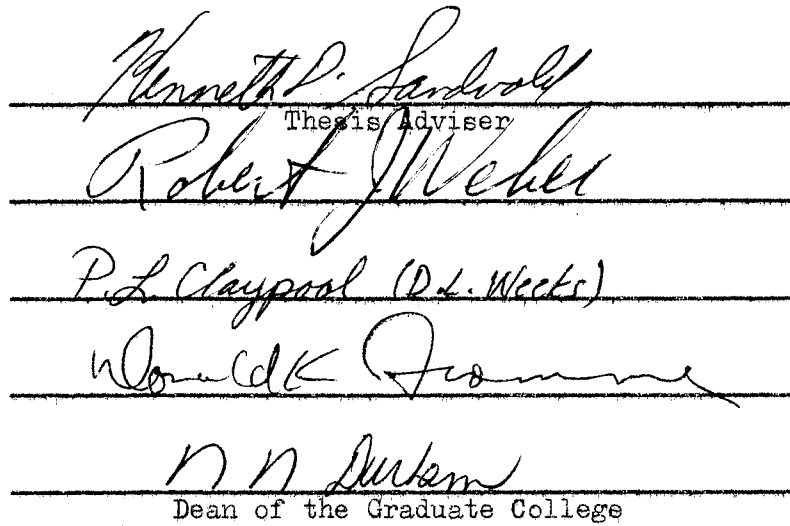 Kenneth D. Sandvold
Thesis Adviser
Robert J Weber
P. L. Claypool (D. L. Weeks)
Donald K Fromme
N N Durham
Dean of the Graduate College